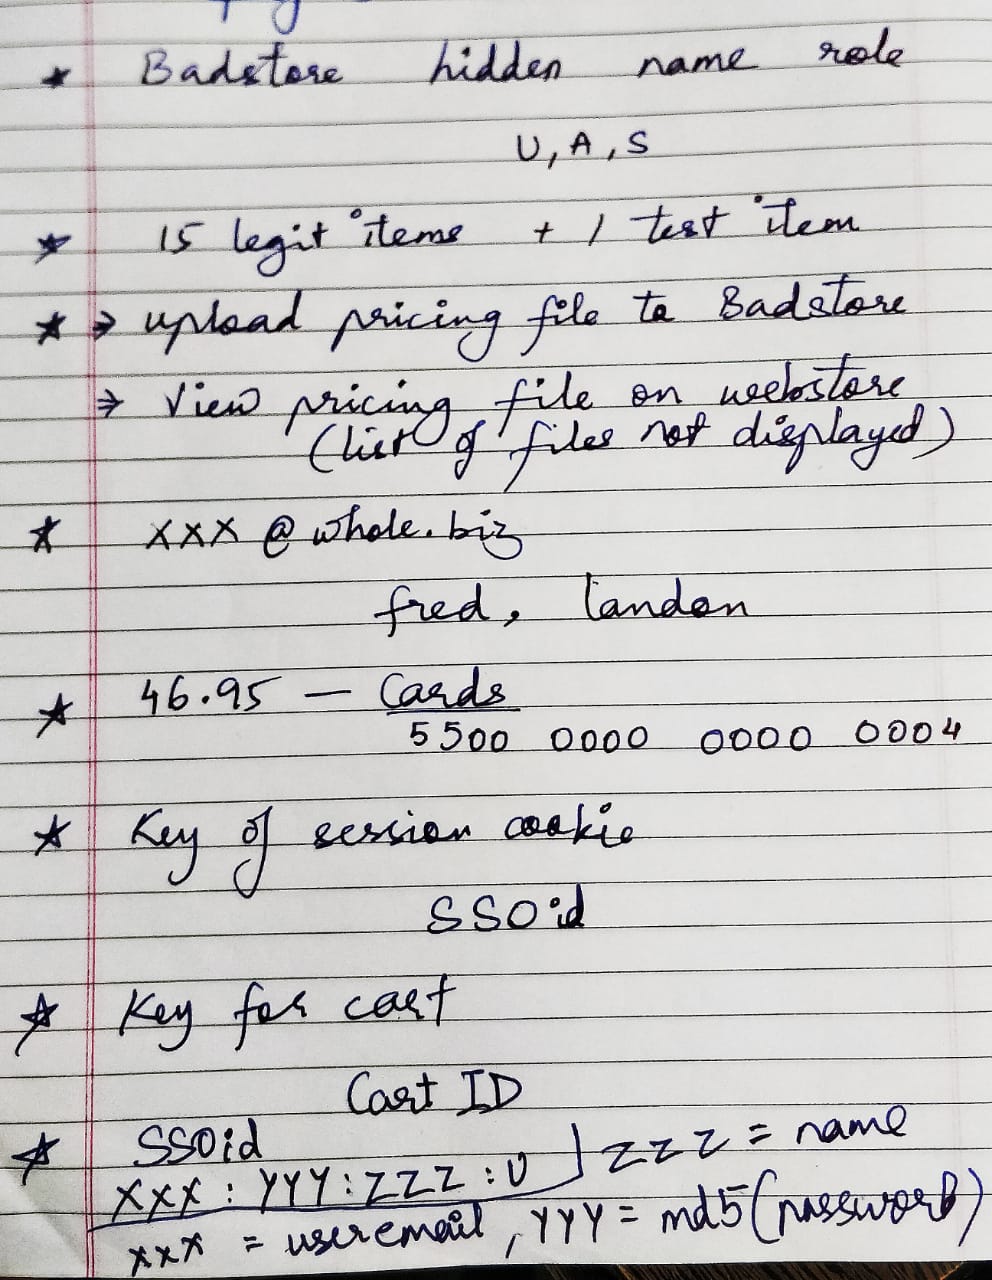 * Badstore hidden name role
U, A, S
* 15 legit items + 1 test item
* ⇒ upload pricing file to Badstore
⇒ View pricing file on webstore
(list of files not displayed)
* XXX @ whole.biz
fred, landon
* 46.95 — Cards
5500 0000 0000 0004
* Key of session cookie
SSOid
* Key for cart
Cart ID
* SSOid
XXX : YYY : ZZZ : U ZZZ = name
XXX = user email, YYY = md5(password)